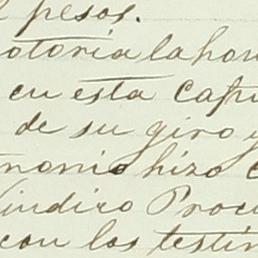 pesos.
otoria la hon
en esta cap
de su giro y
monio hizo
Sindico Proc
con los testi